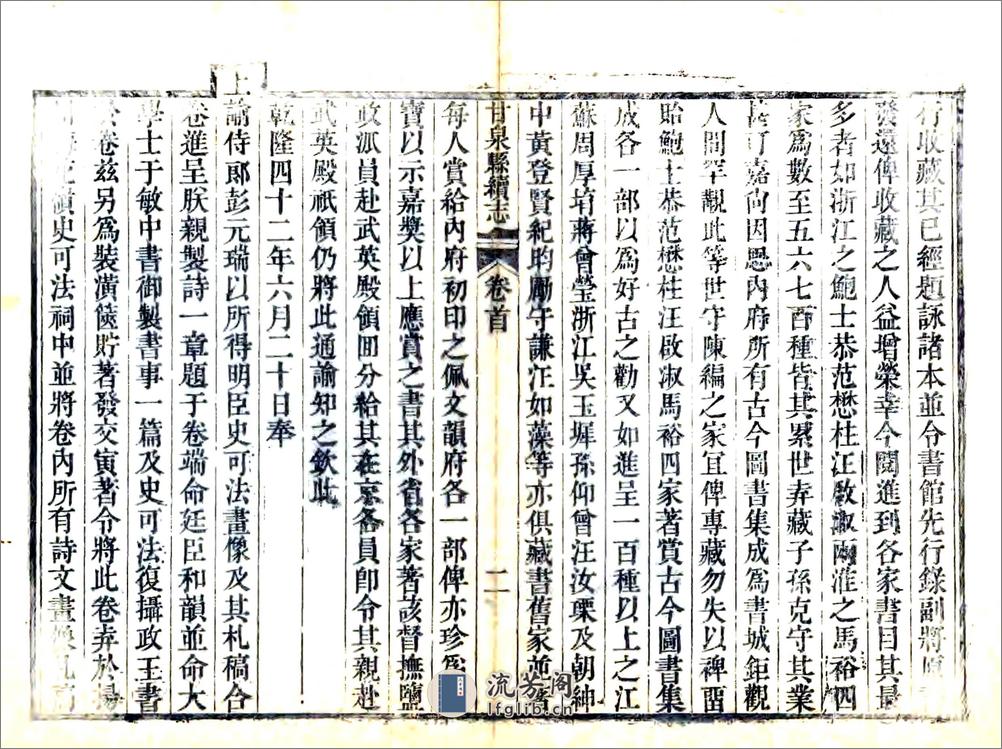 行收藏其已經題詠諸本並令書館先行錄副將原
發還俾收藏之人益增榮幸今閱進到各家書目其最
多者如浙江之鮑士恭范懋柱汪啟淑兩淮之馬裕四
家爲數至五六七百種皆其累世弆藏子孫克守其業
甚可嘉尚因思內府所有古今圖書集成爲書城鉅觀
人間罕覯此等世守陳編之家宜俾專藏勿失以裨畱
貽鮑士恭范懋柱汪啟淑馬裕四家著賞古今圖書集
成各一部以爲好古之勸又如進呈一百種以上之江
蘇周厚堉蔣曾瑩浙江吳玉墀孫仰曾汪汝瑮及朝紳
中黃登賢紀昀勵守謙汪如藻等亦俱藏書舊家並著
甘泉縣續志 卷首 二
每人賞給內府初印之佩文韻府各一部俾亦珍爲
寶以示嘉奬以上應賞之書其外省各家著該督撫鹽
政派員赴武英殿領囬分給其在京各員卽令其親赴
武英殿祇領仍將此通諭知之欽此
乾隆四十二年六月二十日奉
上諭侍郎彭元瑞以所得明臣史可法畫像及其札稿合
卷進呈朕親製詩一章題于卷端命廷臣和韻並命大
學士于敏中書御製書事一篇及史可法復攝政王書
於卷玆另爲裝潢篋貯著發交寅著令將此卷弆於揚
州梅花嶺史可法祠中並將卷內所有詩文畫像札稿
流芳阁
lfglib.cn